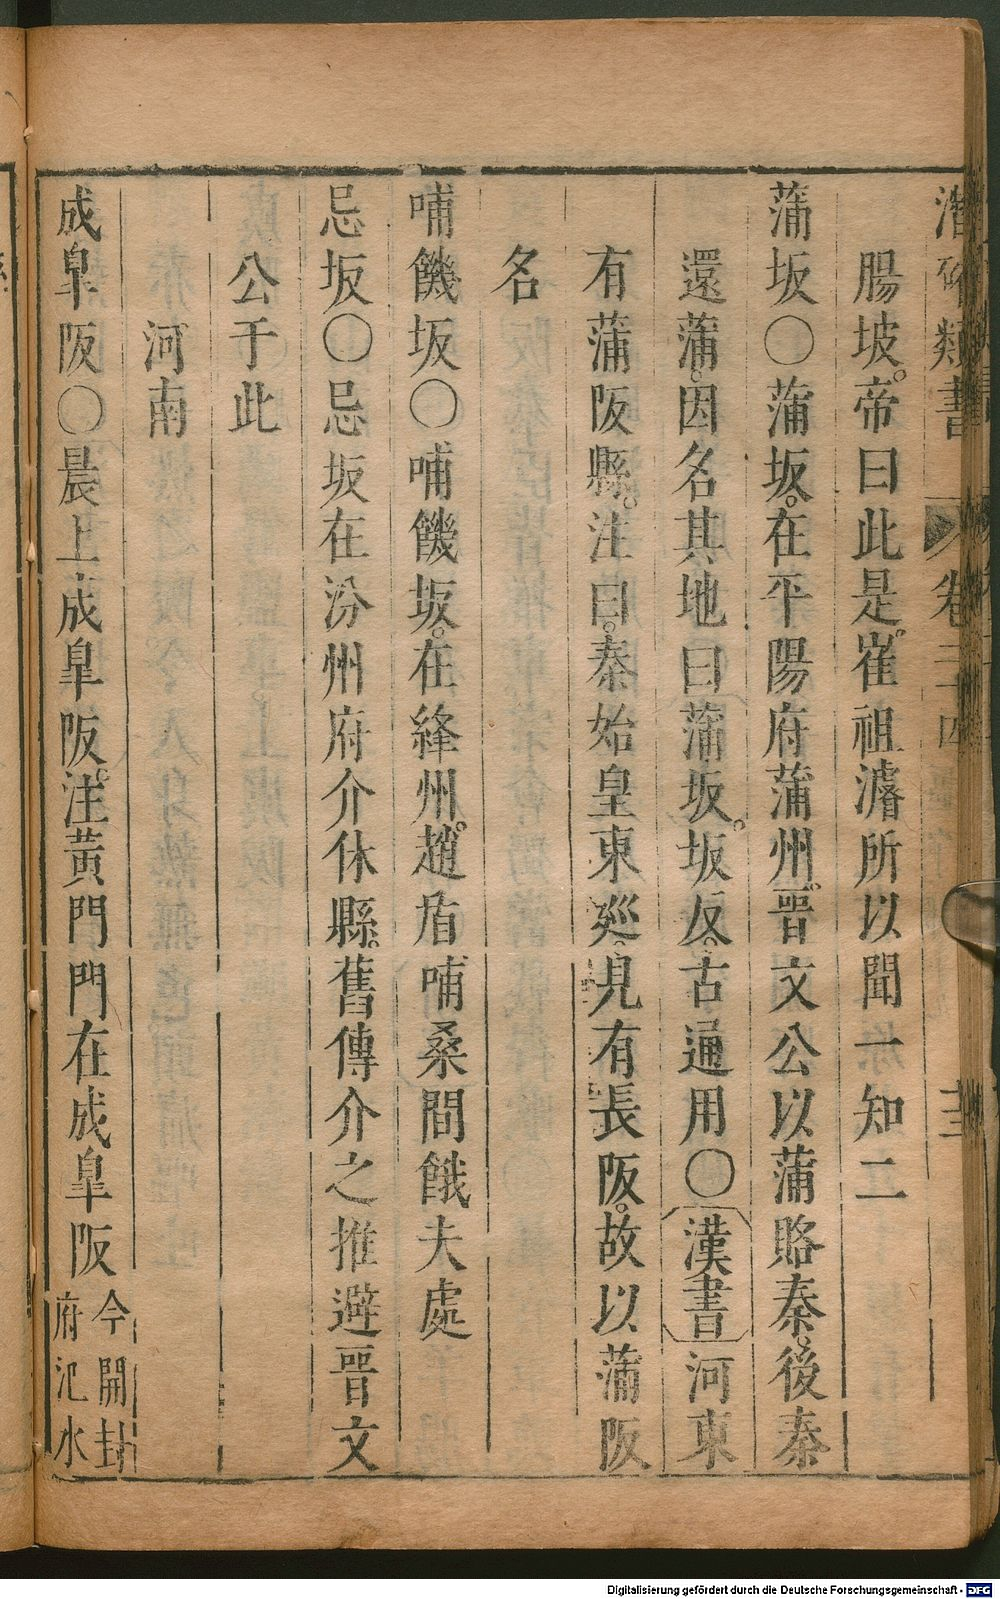 潛確類書 卷三十四
腸坡。帝曰此是。崔祖濬所以聞一知二
蒲坂〇蒲坂。在平陽府蒲州。晉文公以蒲賂秦。後秦
還蒲。因名其地曰蒲坂。坂反。古通用〇漢書河東
有蒲阪縣。注曰。秦始皇東巡。見有長阪。故以蒲阪
名
哺饑坂〇哺饑坂。在絳州。趙盾哺桑間餓夫處
忌坂〇忌坂在汾州府介休縣。舊傳介之推避晉文
公于此
河南
成皐阪〇晨上成皐阪。注黃門門在成皐阪今開封
府汜水
Digitalisierung gefördert durch die Deutsche Forschungsgemeinschaft - DFG